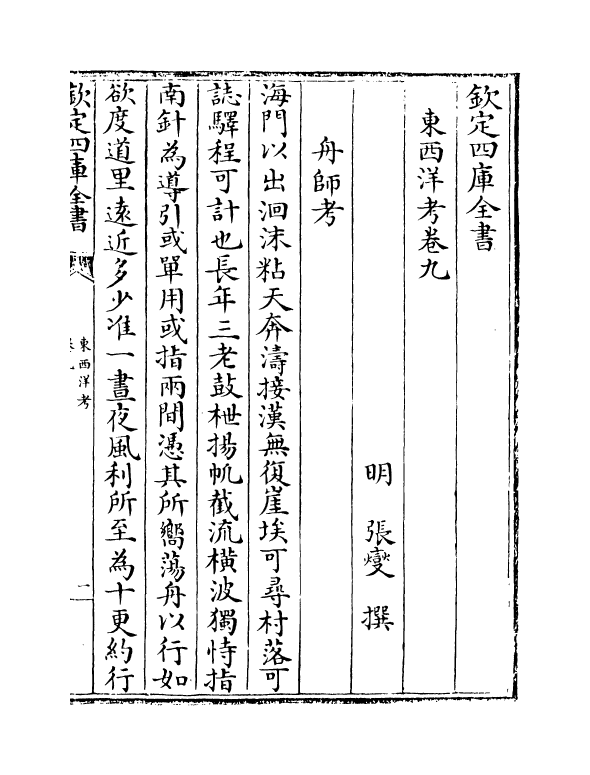 欽定四庫全書
東西洋考卷九
明 張燮 撰
舟師考
海門以出洄沫粘天奔濤接漢無復崖埃可尋村落可
誌驛程可計也長年三老鼓枻揚帆截流橫波獨恃指
南針為導引或單用或指兩間憑其所嚮蕩舟以行如
欲度道里遠近多少准一晝夜風利所至為十更約行
欽定四庫全書
東西洋考